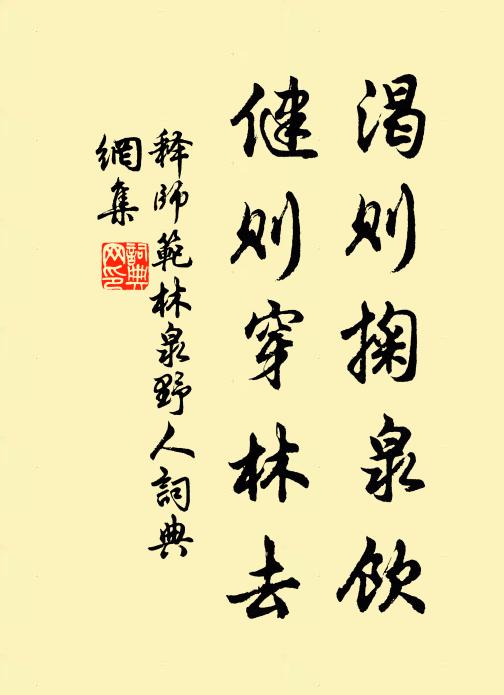 渴则掬泉飲
健则穿林去
释師範林泉野人詞典
網集
詞典
网印